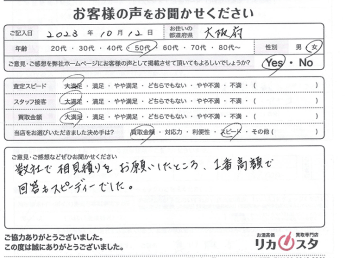 お客様の声をお聞かせください
ご記入日 2023年10月12日 お住いの都道府県 大阪府
年齢 20代・30代・40代・50代・60代・70代・80代〜 性別 男・女
ご意見・ご感想を弊社ホームページにお客様の声として掲載させて頂いてもよろしいでしょうか? Yes・No
査定スピード 大満足・満足・やや満足・どちらでもない・やや不満・不満・( )
スタッフ接客 大満足・満足・やや満足・どちらでもない・やや不満・不満・( )
買取金額 大満足・満足・やや満足・どちらでもない・やや不満・不満・( )
当店をお選びいただきました決め手は? 買取金額・対応力・利便性・スピード・その他( )
ご意見・ご感想などぜひお聞かせください
数社で相見積りをお願いしたところ、1番高額で
回答もスピーディーでした。
ご協力ありがとうございました。
この度は誠にありがとうございました。
お酒高価 買取専門店
リカスタ